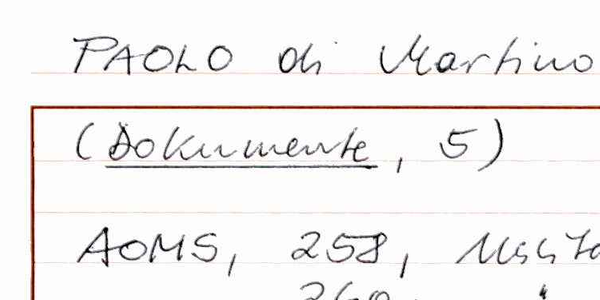 PAOLO di Martino
(Dokumente, 5)
AOMS, 258,